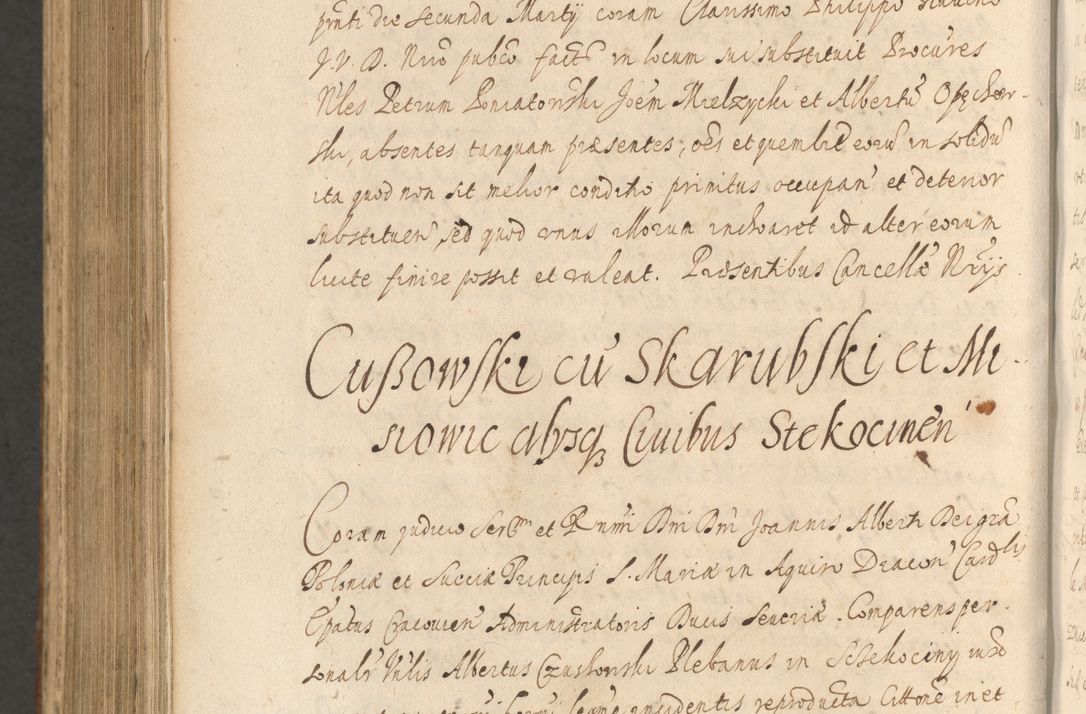 pn̄ti die secunda Martij coram Clarissimo Philippo
J. V. D. Nrio pubco facte in locum sui substituit Procures
Nles Petrum Poniatowski Joēm Mielzycki et Albertū Opęchow-
ski, absentes tanquam præsentes, oēs et quemlibt eorū in solidū
ita quod non sit melior conditio primitus occupan' et deterior
substituen' sed quod vnus illorum inchoaret id alter eorum
licite finire possit et valeat. Præsentibus Cancellæ Nrijs
Cußowski cū Skarubski et Mi-
siowic alysq3 Ciuibus Stekocinēn'
Coram judicio Serssmi et Rnmi Dni Dni Joannis Alberti Dei grā
Poloniæ et Sueciæ Principis S. Mariæ in Aquiro Diacon' Cardlis
Epatus Cracouien' Administratoris Ducis Seueriæ. Comparens per-
sonalr Vnlis Albertus Czuslowski Plebanus in Sczekociny in
incidentis reproducta Citone in et